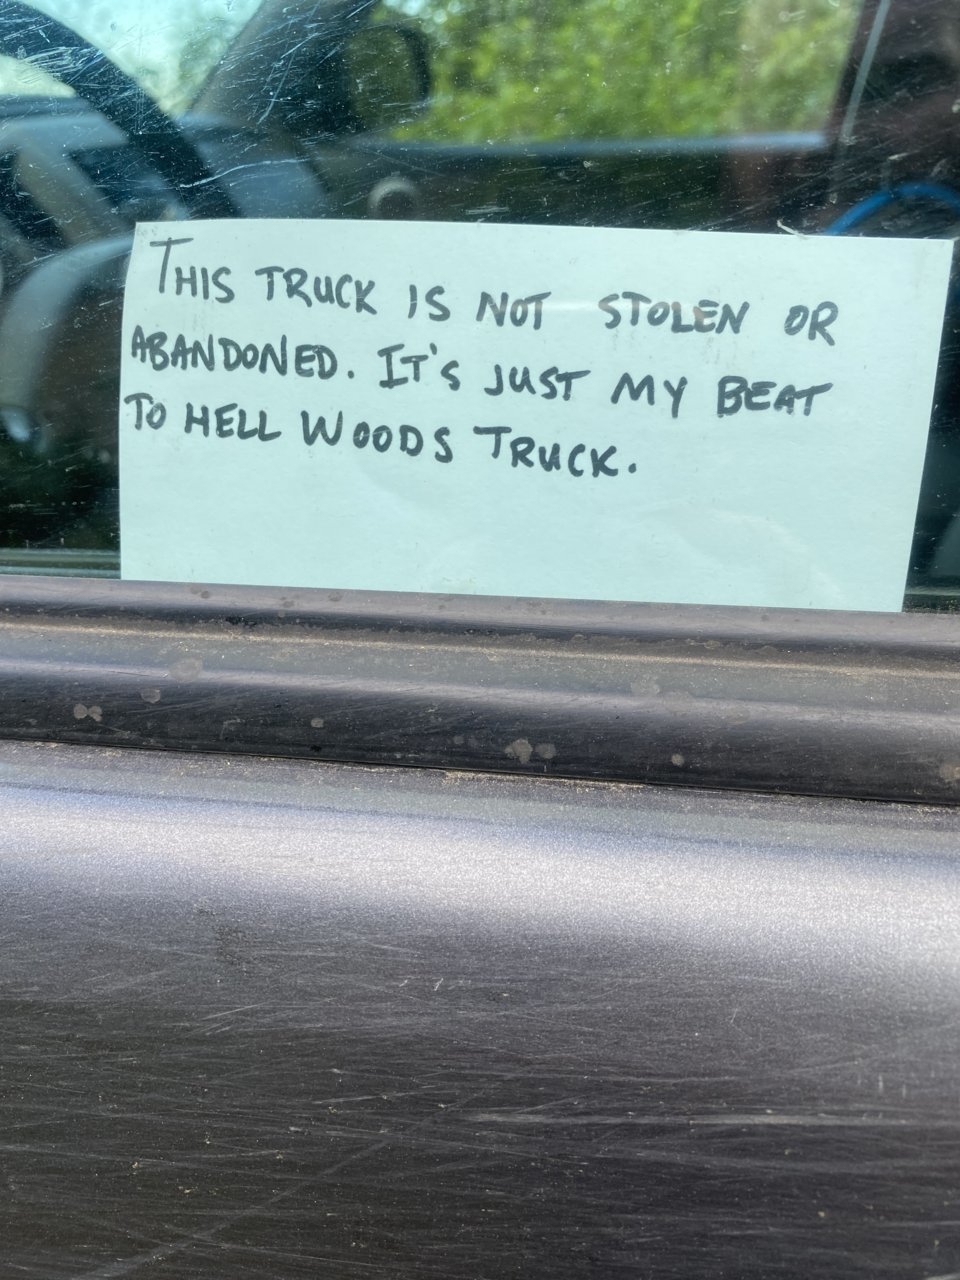 THIS TRUCK IS NOT STOLEN OR
ABANDONED. IT'S JUST MY BEAT
TO HELL WOODS TRUCK.